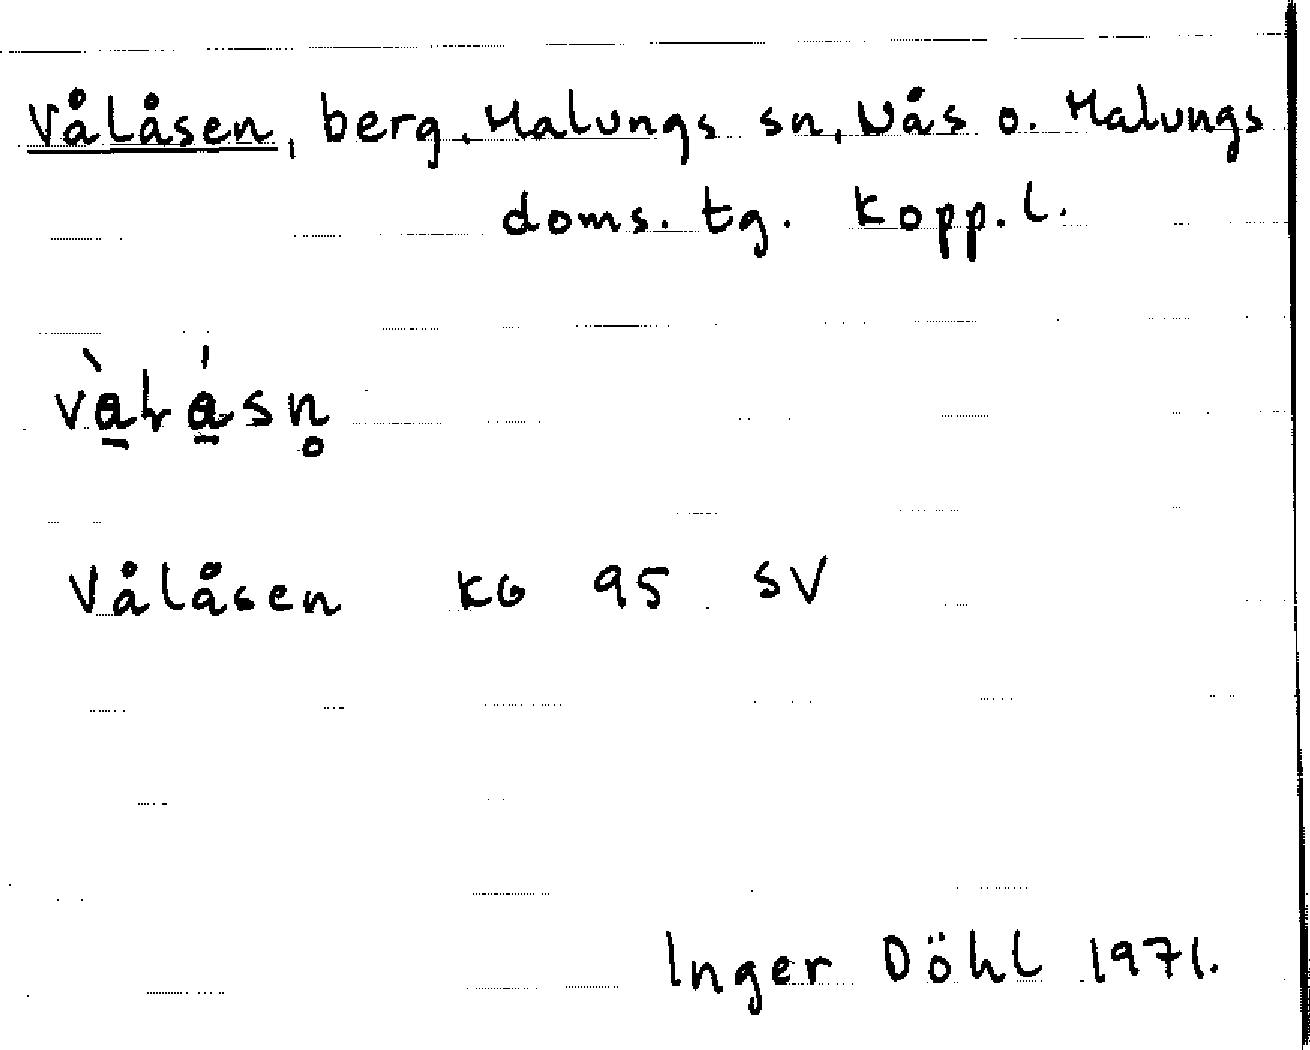 Vålåsen, berg, Malungs sn, Nås o. Malungs
doms. tg. Kopp. l.
và̱ƚá̱sn̥
Vålåsen KG 95 SV
Inger Döhl 1971.